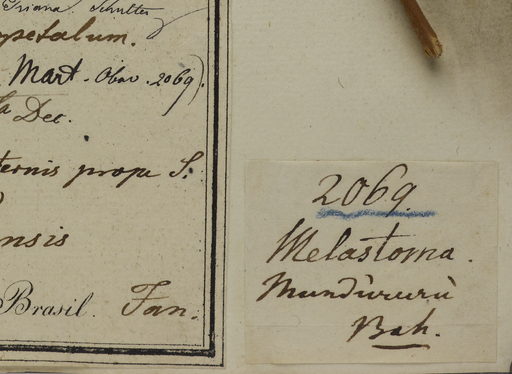 Triana. Schultes
ypetalum.
Mart. Obs. 2069).
Dec.
ternis prope S.
ensis
Brasil. Jan.
2069.
Melastoma.
Mundururù
Bah.